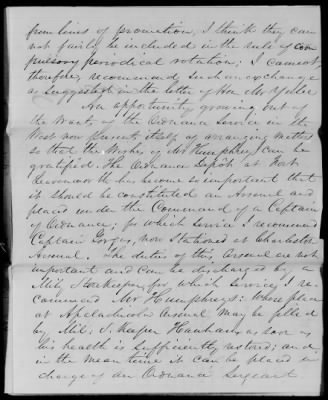 from lines of promotion, I think they can
not fairly be included in the rule of com
pulsory periodical rotation; I cannot
therefore, recommend such an exchange
as suggested in the letter of Hon Mr Yulee
An opportunity growing out of
the wants of the Ordnance Service in the
West now presents itself of arranging matters
so that the wishes of Mr Humphreys can be
gratified. The Ordnance Depôt at Fort
Leavenworth has become so important that
it should be constituted an Arsenal and
placed under the Command of a Captain
of Ordnance; for which service I recommend
Captain Gorgas, now stationed at Charleston
Arsenal. The duties of this Arsenal are not
important and can be discharged by a
Mily Storekeeper, for which service, I re-
commend Mr Humphreys: whose place
at Apalachicola Arsenal may be filled
by Mily S. Keeper as soon as
his health is sufficiently restored; and
in the mean time it can be placed in
charge of an Ordnance Sergeant